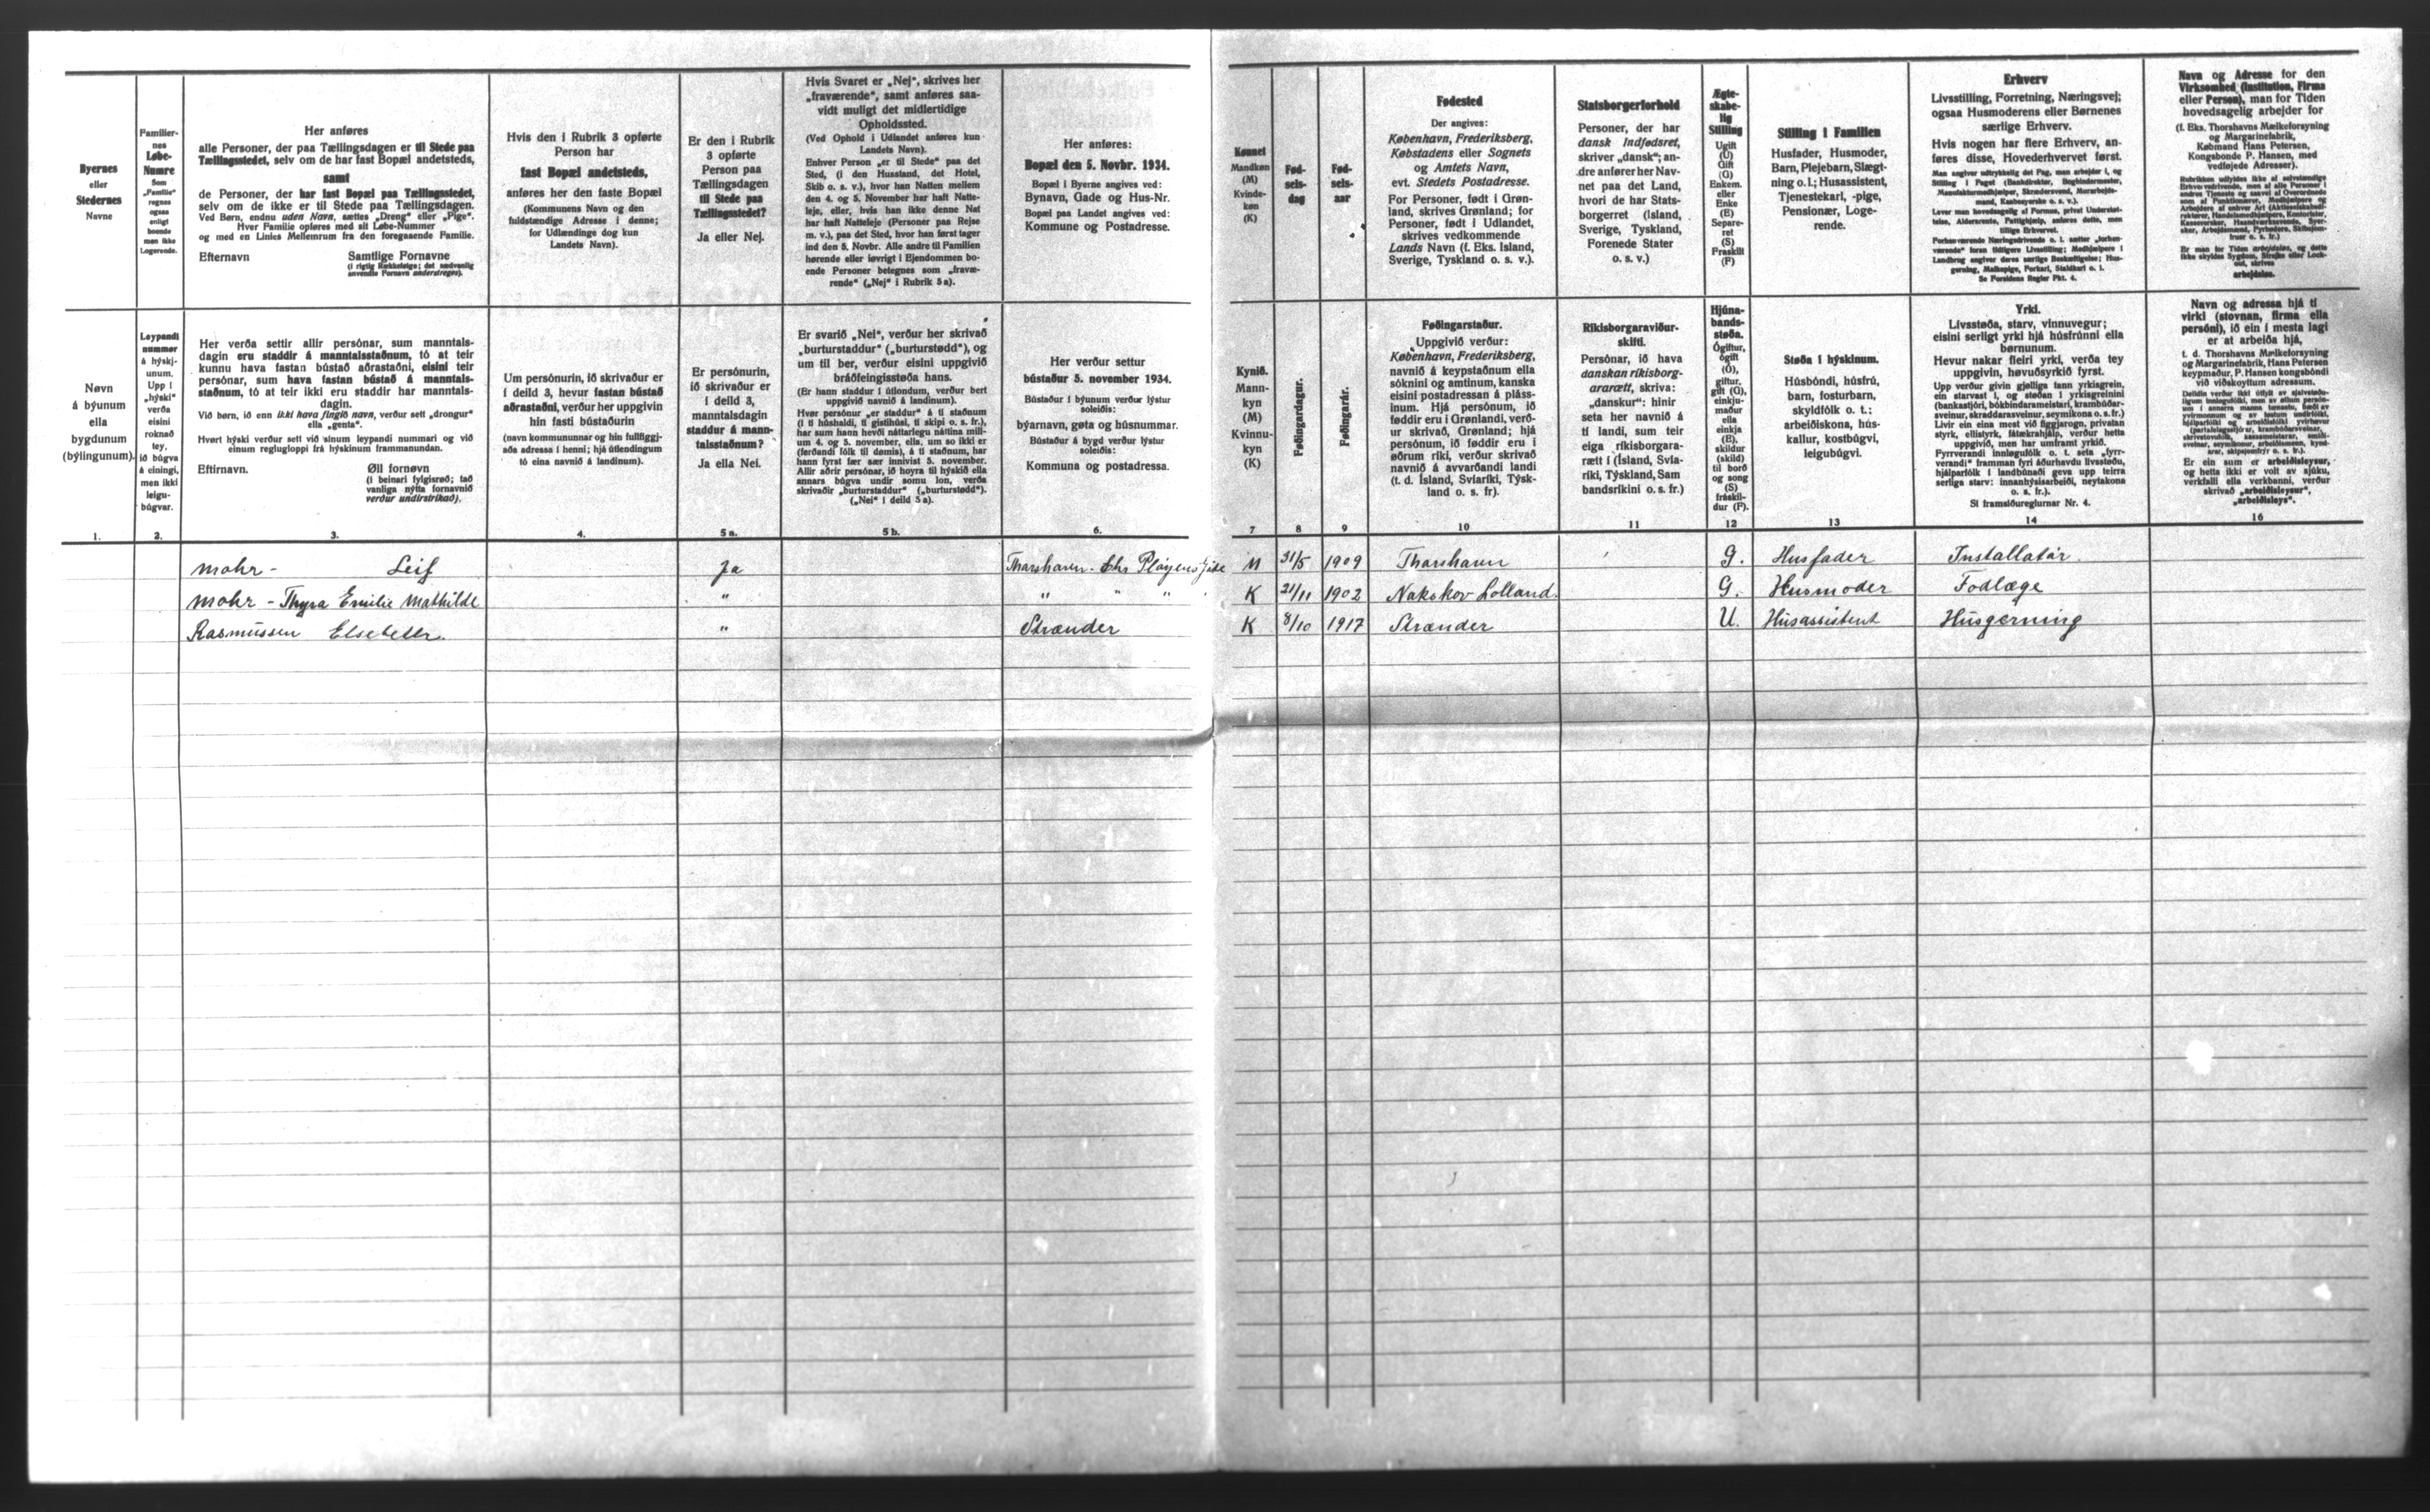 Byernes
eller
Stedernes
Navne
Familier-
nes
Løbe-
Numre
Som
„Familie“
regnes
ogsaa
enligt
boende
man ikke
Logerende.
Her anføres
alle Personer, der paa Tællingsdagen er til Stede paa
Tællingsstedet, selv om de har fast Bopæl andetsteds,
samt
de Personer, der har fast Bopæl paa Tællingsstedet,
selv om de ikke er til Stede paa Tællingsdagen.
Ved Børn, endnu uden Navn, sættes „Dreng“ eller „Pige“.
Hver Familie opføres med sit Løbe-Nummer
og med en Linies Mellemrum fra den foregaaende Familie.
Efternavn Samtlige Fornavne
(i rigtig Rækkefølge; det sædvanlig
anvendte Fornavn understreges).
Hvis den i Rubrik 3 opførte
Person har
fast Bopæl andetsteds,
anføres her den faste Bopæl
(Kommunens Navn og den
fuldstændige Adresse i denne;
for Udlændinge dog kun
Landets Navn).
Er den i Rubrik
3 opførte
Person paa
Tællingsdagen
til Stede paa
Tællingsstedet?
Ja eller Nej.
Hvis Svaret er „Nej“, skrives her
„fraværende“, samt anføres saa-
vidt muligt det midlertidige
Opholdssted.
(Ved Ophold i Udlandet anføres kun
Landets Navn).
Enhver Person „er til Stede“ paa det
Sted, (i den Husstand, det Hotel,
Skib o. s. v.), hvor han Natten mellem
den 4. og 5. November har haft Natte-
leje, eller, hvis han ikke denne Nat
har haft Natteleje (Personer paa Rejse
m. v.), paa det Sted, hvor han først tager
ind den 5. Novbr. Alle andre til Familien
hørende eller iøvrigt i Ejendommen bo-
ende Personer betegnes som „fravæ-
rende“ („Nej“ i Rubrik 5a).
Her anføres:
Bopæl den 5. Novbr. 1934.
Bopæl i Byerne angives ved:
Bynavn, Gade og Hus-Nr.
Bopæl paa Landet angives ved:
Kommune og Postadresse.
Kønnet
Mandkøn
(M)
Kvinde-
køn
(K)
Fød-
sels-
dag
Fød-
sels-
aar
Fødested
Der angives:
København, Frederiksberg,
Købstadens eller Sognets
og Amtets Navn,
evt. Stedets Postadresse.
For Personer, født i Grøn-
land, skrives Grønland; for
Personer, født i Udlandet,
skrives vedkommende
Lands Navn (f. Eks. Island,
Sverige, Tyskland o. s. v.).
Statsborgerforhold
Personer, der har
dansk Indfødsret,
skriver „dansk“; an-
dre anfører her Nav-
net paa det Land,
hvori de har Stats-
borgerret (Island,
Sverige, Tyskland,
Forenede Stater
o. s. v.)
Ægte-
skabe-
lig
Stilling
Ugift
(U)
Gift
(G)
Enkem.
eller
Enke
(E)
Separe-
ret
(S)
Fraskilt
(F)
Stilling i Familien
Husfader, Husmoder,
Barn, Plejebarn, Slægt-
ning o.l.; Husassistent,
Tjenestekarl, -pige,
Pensionær, Loge-
rende.
Erhverv
Livsstilling, Forretning, Næringsvej;
ogsaa Husmoderens eller Børnenes
særlige Erhverv.
Hvis nogen har flere Erhverv, an-
føres disse, Hovederhvervet først.
Man angiver udtrykkelig det Fag, man arbejder i, og
Stilling i Faget (Bankdirektør, Bogbindermester,
Manufakturmedhjælper, Skræddersvend, Murarbejds-
mand, Kasbesyerske o. s. v.).
Lever man hovedsagelig af Formue, privat Understøt-
telse, Aldersrente, Fattighjælp, anføres dette, men
tillige Erhvervet.
Se Forsidens Regler Pkt. 4.
Navn og Adresse for den
Virksomhed (Institution, Firma
eller Person), man for Tiden
hovedsagelig arbejder for
(f. Eks. Thorshavns Mælkeforsyning
og Margarinefabrik,
Købmand Hans Petersen,
Kongsbonde P. Hansen, med
vedføjede Adresser).
Er man for Tiden arbejdsløs, og dette
ikke skyldes Sygdom, Strejke eller Lock-
out, skrives
arbejdsløs.
Nøvn
á býunum
ella
bygdunum
(býlingunum).
Leypandi
nummar
á hýskj-
unum.
Upp i
„hýski“
verða
eisini
roknað
tey,
ið búgva
á einingi,
men ikki
leigu-
búgvar.
Her verða settir allir persónar, sum manntals-
dagin eru staddir á manntalsstaðnum, tó at teir
kunnu hava fastan bústað aðrastaðni, eisini teir
persónar, sum hava fastan bústað á manntals-
staðnum, tó at teir ikki eru staddir har manntals-
dagin.
Við børn, ið enn ikki hava fingið navn, verður sett „drongur“
ella „genta“.
Hvørt hýski verður sett við sínum leypandi nummari og við
einum reglugloppi frá hýskinum frammanundan.
Eftirnavn. Øll fornøvn
(í beinari fylgisrøð; tað
vanliga nýtta fornavnið
verður undirstrikað).
Um persónurin, ið skrivaður er
í deild 3, hevur fastan bústað
aðrastaðni, verður her uppgivin
hin fasti bústaðurin
(navn kommununnar og hin fullfiggj-
aða adressa í henni; hjá útlendingum
tó eina navnið á landinum).
Er persónurin,
ið skrivaður er
í deild 3,
manntalsdagin
staddur á mann-
talsstaðnum?
Ja ella Nei.
Er svarið „Nei“, verður her skrivað
„burturstaddur“ („burturstødd“), og
um til ber, verður eisini uppgivið
bráðfeingisstøða hans.
(Er hann staddur í útlondum, verður bert
uppgivið navnið á landinum).
Hvør persónur „er staddur“ á tí staðnum
(í tí húshaldi, tí gistihúsi, tí skipi o. s. fr.),
har sum hann hevði náttarlegu náttina milli-
um 4. og 5. november, ella, um so ikki er
(ferðandi fólk til dømis), á tí staðnum, har
hann fyrst fær sær innivist 5. november.
Allir aðrir persónar, ið hoyra til hýskið ella
annars búgva undir somu lon, verða
skrivaðir „burturstaddur“ („burturstødd“).
(„Nei“ í deild 5a).
Her verður settur
bústaður 5. november 1934.
Bústaður í býunum verður lýstur
soleiðis:
býarnavn, gøta og húsnummar.
Bústaður á bygd verður lýstur
soleiðis:
Kommuna og postadressa.
Kynið.
Mann-
kyn
(M)
Kvinnu-
kyn
(K)
Føðingardagur.
Føðingarár.
Føðingarstaður.
Uppgivið verður:
København, Frederiksberg,
navnið á keypstaðnum ella
sóknini og amtinum, kanska
eisini postadressan á pláss-
inum. Hjá persónum, ið
føddir eru í Grønlandi, verð-
ur skrivað, Grønland; hjá
persónum, ið føddir eru í
øðrum ríki, verður skrivað
navnið á avvarðandi landi
(t. d. Ísland, Svíaríki, Týsk-
land o. s. fr).
Ríkisborgaraviður-
skifti.
Persónar, ið hava
danskan ríkisborg-
ararætt, skriva:
„danskur“: hinir
seta her navnið á
tí landi, sum teir
eiga ríkisborgara-
rætt í (Ísland, Svía-
ríki, Týskland, Sam
bandsríkini o. s. fr.)
Hjúna-
bands-
støða.
Ógiftur,
ógift
(Ó),
giftur,
gift (G),
einkju-
maður
ella
einkja
(E),
skildur
(skild)
til borð
og song
(S)
fráskil-
dur (F).
Støða í hýskinum.
Húsbóndi, húsfrú,
barn, fosturbarn,
skyldfólk o. t.;
arbeiðiskona, hús-
kallur, kostbúgvi,
leigubúgvi.
Yrki.
Livsstøða, starv, vinnuvegur;
eisini serligt yrki hjá húsfrúnni ella
børnunum.
Hevur nakar fleiri yrki, verða tey
uppgivin, høvuðsyrkið fyrst.
Upp verður givin gjølliga tann yrkisgrein,
ein starvast í, og støðan í yrkisgreinini
(bankastjóri, bókbindarameistari, krambúðar-
sveinur, skraddarasveinur, seymikona o. s. fr.)
Livir ein eina mest við figgjarogn, privatan
styrk, ellistyrk, fátækrahjálp, verður hetta
uppgivið, men har umframt yrkið.
Fyrrverandi inntøgufólk o. t. seta „fyrr-
verandi“ framman fyri áðurhavdu livsstøðu,
hjálparfólk í landbúnaði geva upp teirra
serliga starv: innanhýsisarbeiði, neytakona
o. s. fr.).
Sí framsíðureglurnar Nr. 4.
Navn og adressa hjá tí
virki (stovnan, firma ella
persóni), ið ein í mesta lagi
er at arbeiða hjá,
t. d. Thorshavns Mælkeforsyning
og Margarinefabrik, Hans Petersen
keypmaður, P. Hansen kongsbóndi
við viðskoyttum adressum.
Er ein sum er arbeiðisleysur,
og hetta ikki er volt av sjúku,
verkfalli ella verkbanni, verður
skrivað „arbeiðisleysur“,
„arbeiðisleys“.
1. 2. 3. 4. 5a. 5b. 6. 7 8 9 10 11 12 13 14 16
Mohr - Leif Ja Thorshavn. Chr Pløyens Gade M 31/5 1909 Thorshavn G. Husfader Installatør.
Mohr - Thyra Emilie Mathilde " " " " K 21/11 1902 Nakskov Lolland. G. Husmoder Fodlæge
Rasmussen Elsebeth. " Strænder K 8/10 1917 Strænder U. Husassistent Husgerning